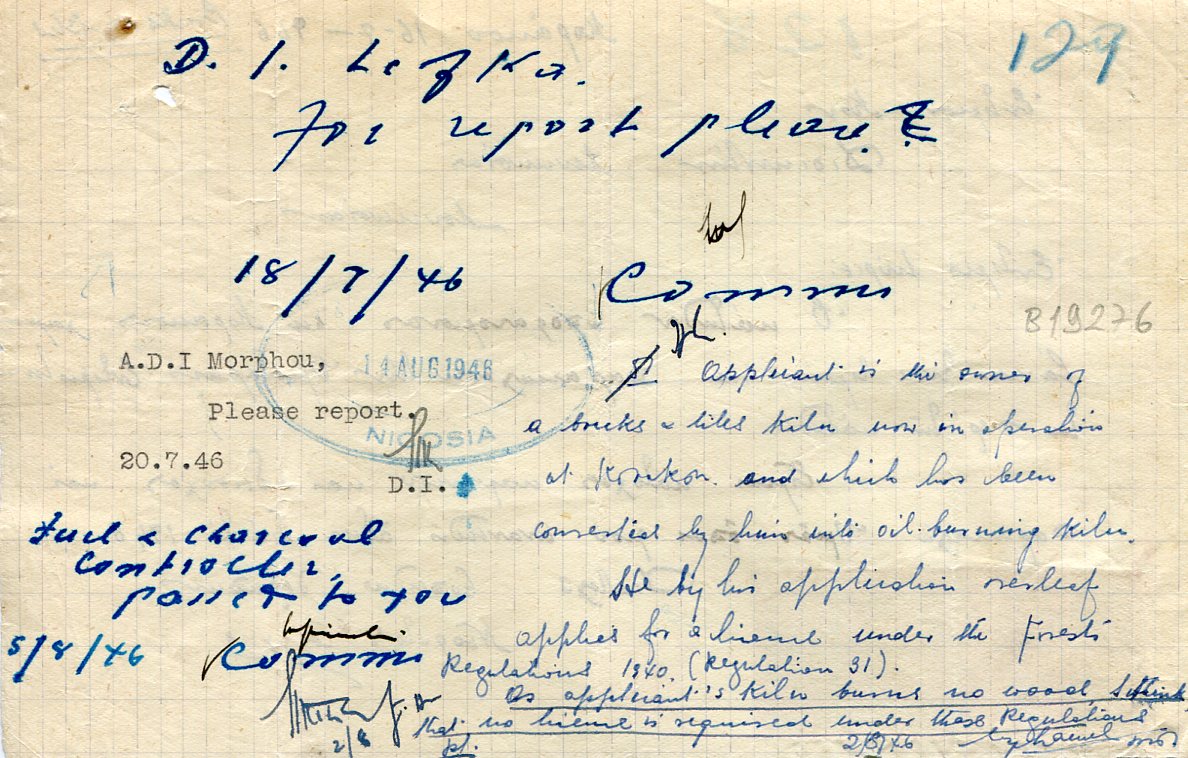 129
D. I. Lefka.
For report please.
18/7/46
Commr
B19276
A.D.I Morphou,
14 AUG 1946
Please report.
NICOSIA
20.7.46
D.I.
Fuel & Charcoal
Controller,
passed to you
5/8/46
Commr
2/8
Applicant is the owner of
a bricks & tiles kiln now in operation
at and which has been
converted by him into oil-burning kiln.
He by his application overleaf
applies for a licence under the Forests
Regulations 1940. (Regulation 31).
As applicant's kiln burns no wood, I think
that no licence is required under these Regulations
2/8/46